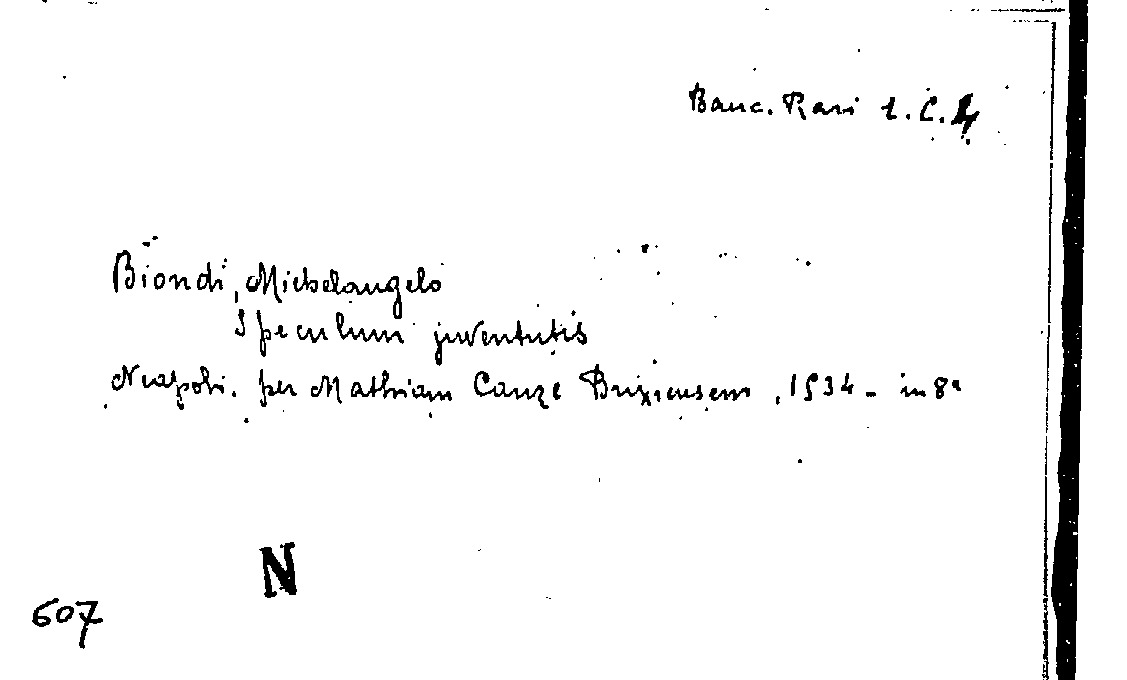 Banc. Rari 1. C.
Biondi, Michelangelo
Speculum juventutis
Neapoli. per Mathiam Canze Brixiensem, 1534 - in 8°
N
607